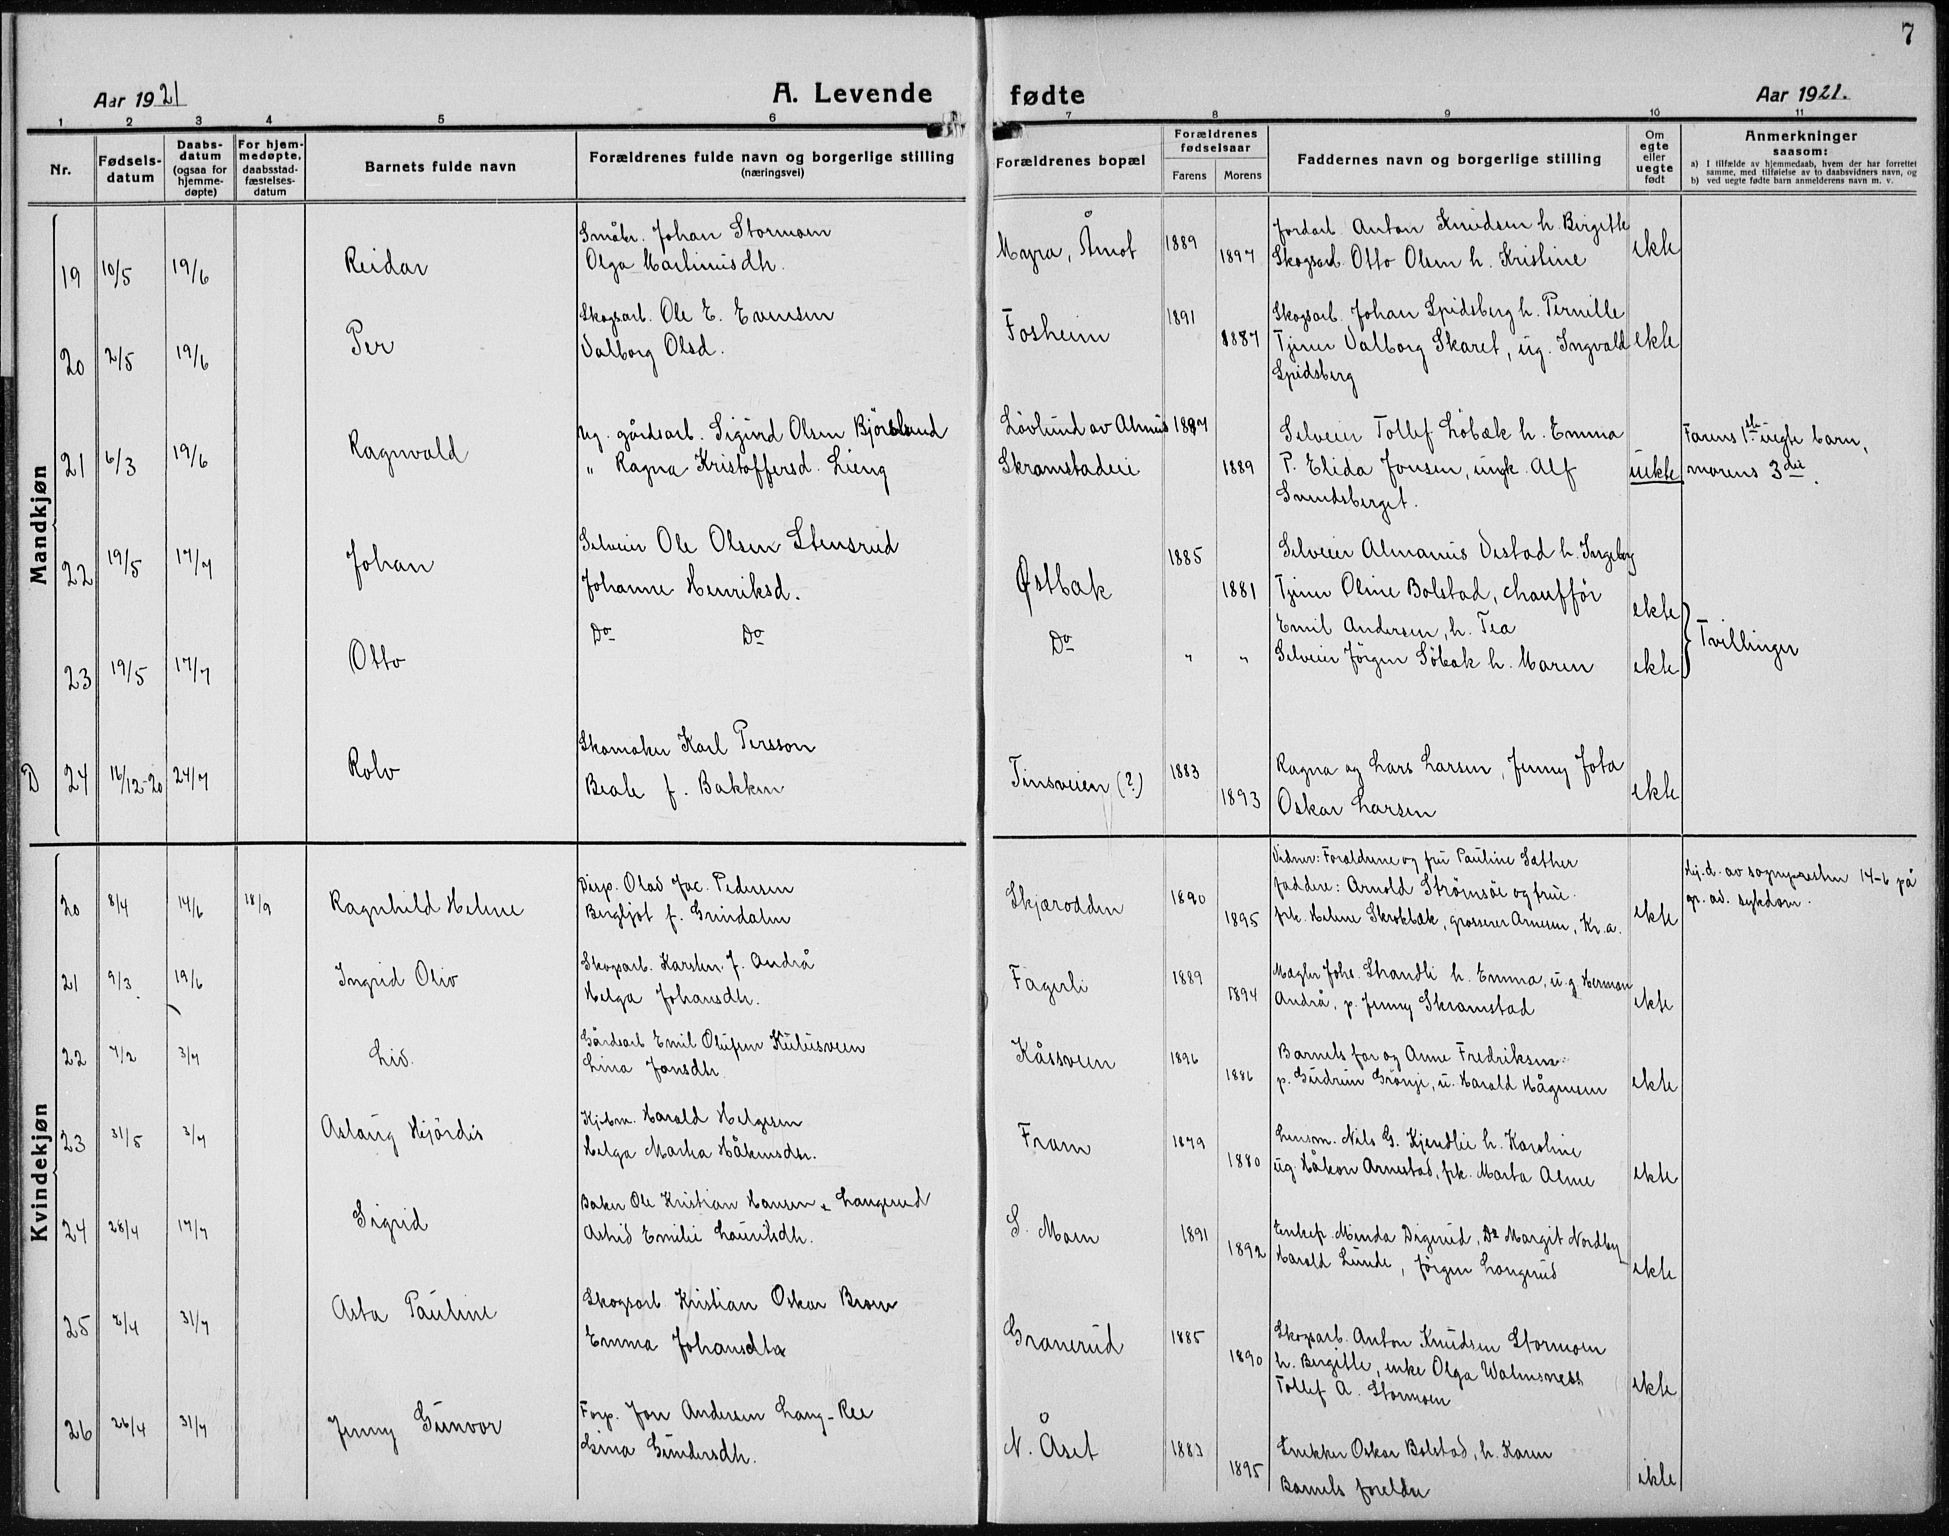 7
Aar 1921
A. Levende
fødte
Aar 1921.
1 2 3 4 5 6 7 8 9 10 11
Nr.
Fødsels-
datum
Daabs-
datum
(ogsaa for
hjemme-
døpte)
For hjem-
medøpte,
daabsstad-
fæstelses-
datum
Barnets fulde navn
Forældrenes fulde navn og borgerlige stilling
(næringsvei)
Forældrenes bopæl
Forældrenes
fødselsaar
Farens
Morens
Faddernes navn og borgerlige stilling
Om
egte
eller
uegte
født
Anmerkninger
saasom:
a) I tilfælde av hjemmedaab, hvem der har forrettet
samme, med tilføielse av to daabsvidners navn, og
b) ved uegte fødte barn anmelderens navn m. v.
Mandkjøn
19 10/5 19/6 Reidar
Småbr. Johan Stormoen
Olga Martinusdh.
Myra, Åmot 1889 1897
Jordarb. Anton Knudsen h. Birgitte
Skogsarb. Otto Olsen h. Kristine
ekte
20 2/5 19/6 Per
Skogsarb. Ole E. Evensen
Valborg Olsd.
Fosheim 1891 1887
Skogsarb. Johan Spidsberg h. Pernille
Tjener Valborg Skaret, ug. Ingvald
Spidsberg
ekte
21 6/3 19/6 Ragnvald
Ug. gårdsarb. Sigurd Olsen Björnlund
" Ragna Kristoffersd. Lieng
Lövlund av Almus
Skramstadeie
1897 1889
Selveier Tollef Löbæk h. Emma
P. Elida Jonsen, ungk. Alf
Svendsberget.
uekte
Farens 1ste uegte barn,
morens 3die.
22 19/5 17/7 Johan
Selveier Ole Olsen Stensrud
Johanne Henriksd.
Østbak 1885 1881
Selveier Almanus Vestad h. Ingeborg
Tjener Oline Bolstad, chauffør
Emil Andersen, h. Tea
ekte
Tvillinger
23 19/5 17/7 Otto
Do Do
Do " "
Selveier Jörgen Söbak h. Maren
ekte
D 24 16/12-20 24/7 Rolv
Skomaker Karl Persson
Beate f. Bakken
Tinsveien (?) 1883 1893
Ragna og Lars Larsen, Jenny Jota
Oskar Larsen
ekte
Kvindekjøn
20 8/4 14/6 18/9 Ragnhild Helene
Disp. Olav Jac. Pedersen
Bergljot f. Grindalen
Skjærodden 1890 1895
Vidner: Forældrene og fru Pauline Sæther
faddere: Arnold Strömsöe og frue.
frk. Helene Skrokbæk, grosserer Arnesen, Kr.a.
ekte
Hj.d. av sognepresten 14-6 på
gr. av. sykdom.
21 9/3 19/6 Ingrid Oliv
Skogsarb. Karsten J. Andrå
Helga Johansdh.
Fagerli 1889 1894
Mægler Johs. Strandli h. Emma, u.g. Herman
Andrå, p. Jenny Skramstad
ekte
22 7/2 3/7 Liv.
Gårdsarb Emil Olufsen Kulusveen
Lina Jonsdh.
Kåssveen 1896 1886
Barnets far og Anne Fredriksen.
p. Gudrun Grönje, u. Harald Hågensen
ekte
23 31/5 3/7 Aslaug Hjördis
Kjøbm. Harald Helgesen
Helga Marka Håkensdh.
Fram 1879 1880
Lensm. Nils G. Kjendlie h. Karoline
ug. Håkon Arnestad, frk. Marta Alme
ekte
24 28/4 17/7 Sigrid
Baker Ole Kristian Hansen Langerud
Astrid Emilie Lauritsdh.
S. Moen 1891 1892
Enkefr. Minda Digerud, Do Margit Nordby
Harald Lunde, Jörgen Langerud
ekte
25 2/4 31/7 Asta Pauline
Skogsarb Kristian Oskar Broen
Emma Johansdtr
Granerud 1885 1890
Skogsarb. Anton Knudsen Stormoen
h. Bergitte, enke Olga Walmsness
Tollef A. Stormoen
ekte
26 26/4 31/7 Jenny Gunvor
Forp. Jon Andersen Lang-Ree
Lina Gundersdh.
N. Åset 1883 1895
Snekker Oskar Bolstad, h. Karen
Barnets foreldre
ekte